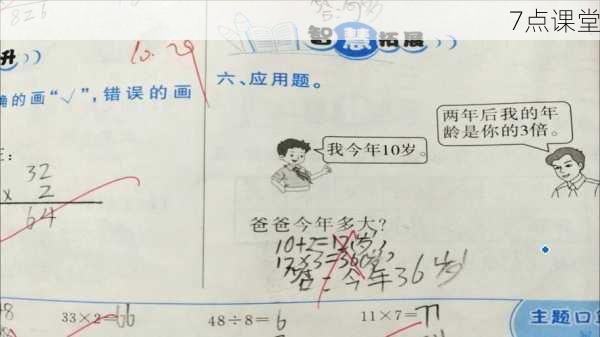 826
7点课堂
升
智慧拓展
10.29
确的画“√”，错误的画
六、应用题。
我今年10岁。
两年后我的年
龄是你的3倍。
32
× 2
64
爸爸今年多大？
10+2=12(岁)
12×3=36(岁)
答：今年36岁
33×2=66
48÷8=6
11×7=77
主题口算